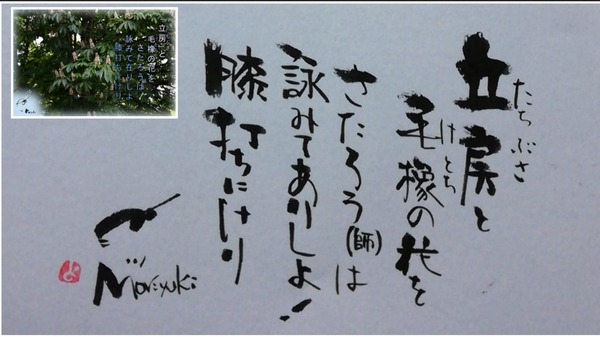 立房と
たちぶさ
毛橡の花を
けとち
さたろう(師)は
詠みてありしよ!
膝打ちにけり
Moriyuki
立房と
毛橡の花を
さたろうは
詠みて在りしよ
膝打ちにけり